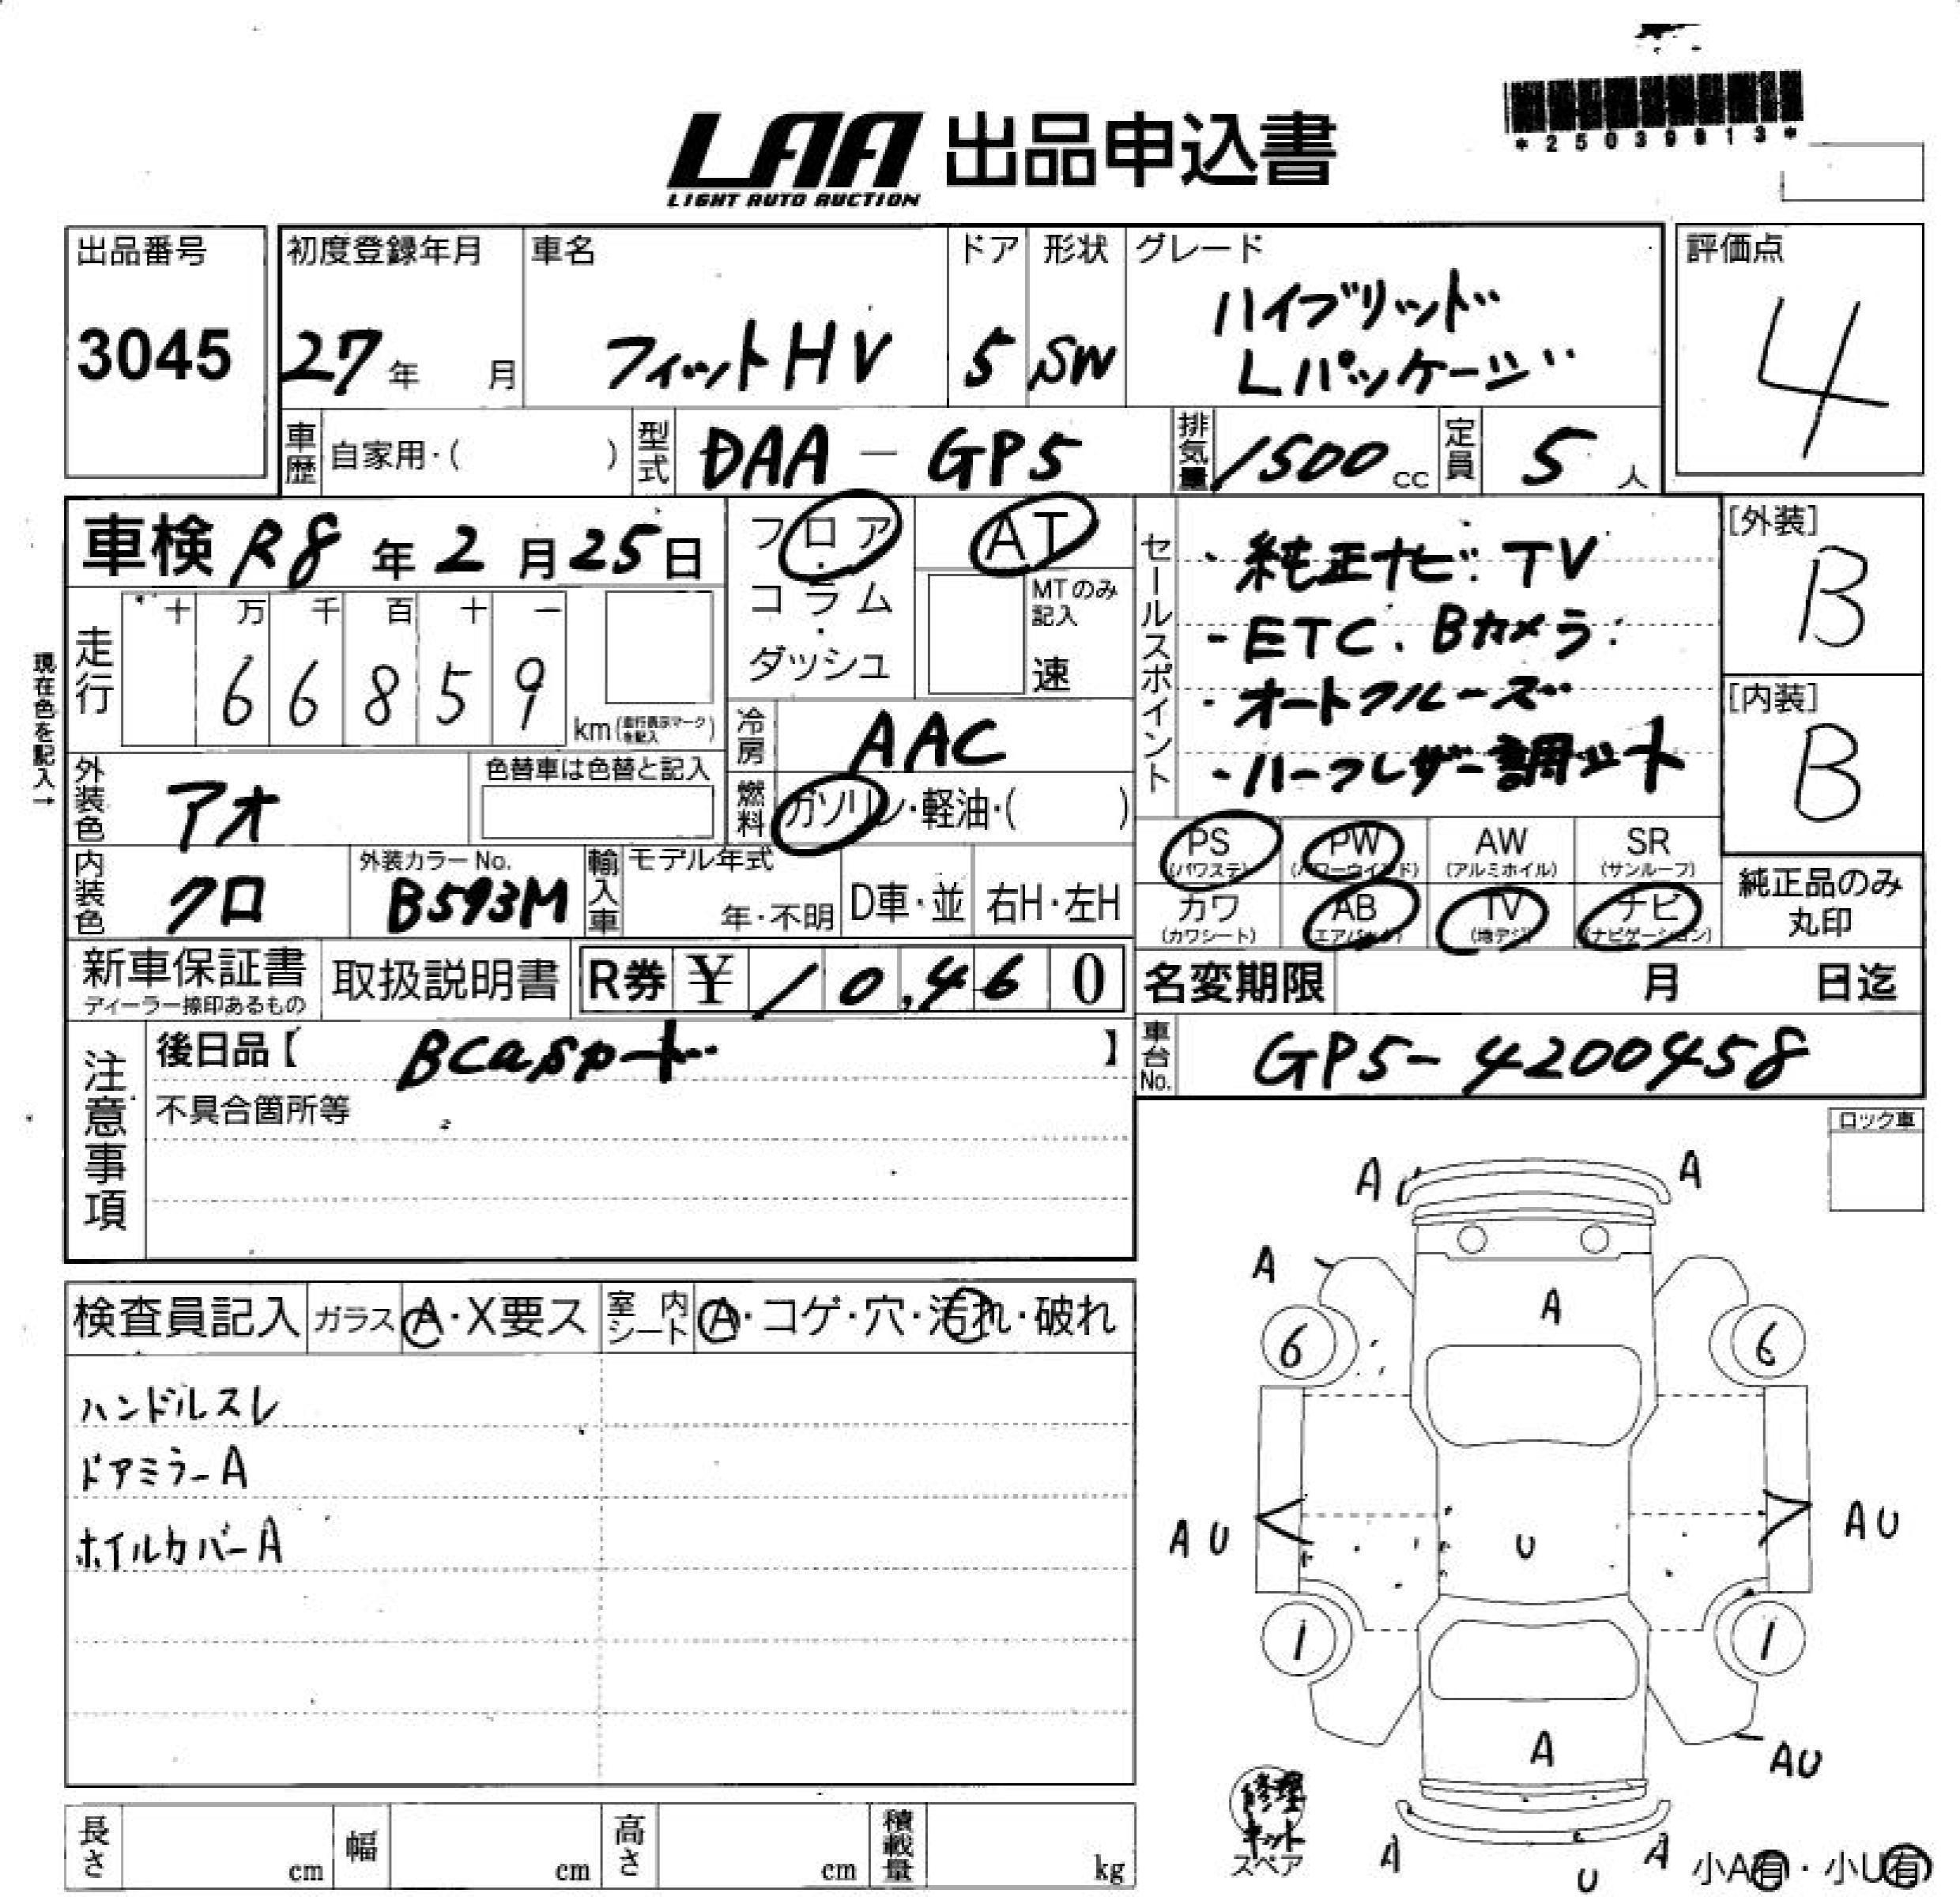 *25039813*
LAA 出品申込書
LIGHT AUTO AUCTION
出品番号 初度登録年月 車名 ドア 形状 グレード 評価点
3045 27年 月 フィットHV 5 SW ハイブリッド
Lパッケージ
4
車歴 自家用・( ) 型式 DAA-GP5 排気量 1500cc 定員 5人
車検 R8年2月25日 フロア・コラム・ダッシュ AT
MTのみ記入
速
現在色を記入→
走行 十 万 千 百 十 一
6 6 8 5 9 km(走行表示マークを記入)
冷房 AAC
燃料 ガソリン・軽油・( )
セールスポイント
・純正ナビ.TV
・ETC.Bカメラ
・オートクルーズ
・ハーフレザー調シート
[外装]
B
[内装]
B
外装色 アオ 色替車は色替と記入
内装色 クロ 外装カラーNo. B593M 輸入車 モデル年式 年・不明 D車・並 右H・左H
PS (パワステ) PW (パワーウインド) AW (アルミホイル) SR (サンルーフ)
カワ (カワシート) AB (エアバック) TV (地デジ) ナビ (ナビゲーション)
純正品のみ
丸印
新車保証書 ディーラー捺印あるもの 取扱説明書 R券 ¥10,460
名変期限 月 日迄
注意事項
後日品【 】
不具合箇所等
車台No. GP5-4200458
ロック車
検査員記入 ガラス A・X要ス 室内シート A・コゲ・穴・汚れ・破れ
ハンドルスレ
ドアミラーA
ホイルカバーA
A A
A A
6 6
AU U AU
1 1
A AU
修理
キット
スペア
A U A
小A有・小U有
長さ cm 幅 cm 高さ cm 積載量 kg